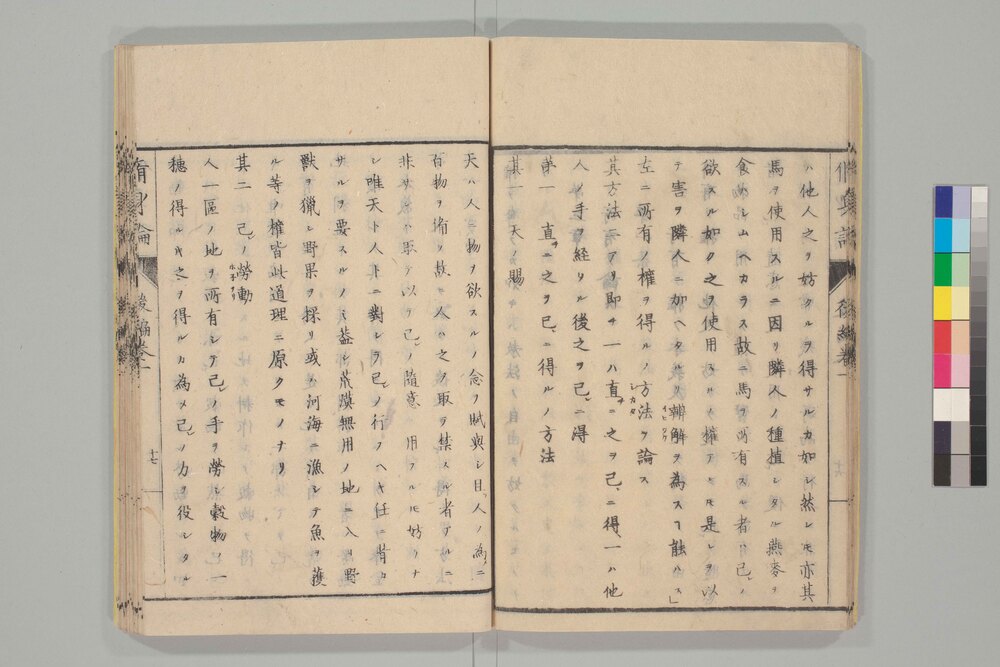 ハ他人之ヲ妨クルヲ得サルカ如シ然レ𪜈亦其
馬ヲ使用スルニ因リ隣人ノ種植シタル燕麥ヲ
食ハシムヘカラス故ニ馬ヲ所有スル者ハ己ノ
欲スル如ク之ヲ使用スルノ權アレ𪜈是レヲ以
テ害ヲ隣人ニ加ヘタルノ辨解ヲ為スヿ能ハス」
左ニ所有ノ權ヲ得ルノ方法ヲ論ス
其方法二アリ即チ一ハ直ニ之ヲ己ニ得、一ハ他
人ノ手ヲ經タル後之ヲ己ニ得
第一 直ニ之ヲ己ニ得ルノ方法
其一 天ノ賜
天ハ人ニ物ヲ欲スルノ念ヲ賦與シ且人ノ為ニ
百物ヲ備フ故ニ人ハ之ヲ取テ禁スル者アルニ
非サレハ取テ以テ己ノ隨意ニ用フルモ妨リナ
シ唯天ト人トニ對シテ己ノ行フヘキ任ニ背カ
サルヲ要スルノミ蓋シ荒漠無用ノ地ニ入リ野
獸ヲ獵シ野果ヲ採リ或ハ河海ニ漁シテ魚ヲ獲
ル等ノ權皆此道理ニ原クモノナリ
其二 己ノ勞動
人一區ノ地ヲ所有シテ己ノ手ヲ勞シ穀物一
穂ノ得ルキ之ヲ得ルカ為メ己ノ力ヲ役シタル
脩身論
後編卷一
十七